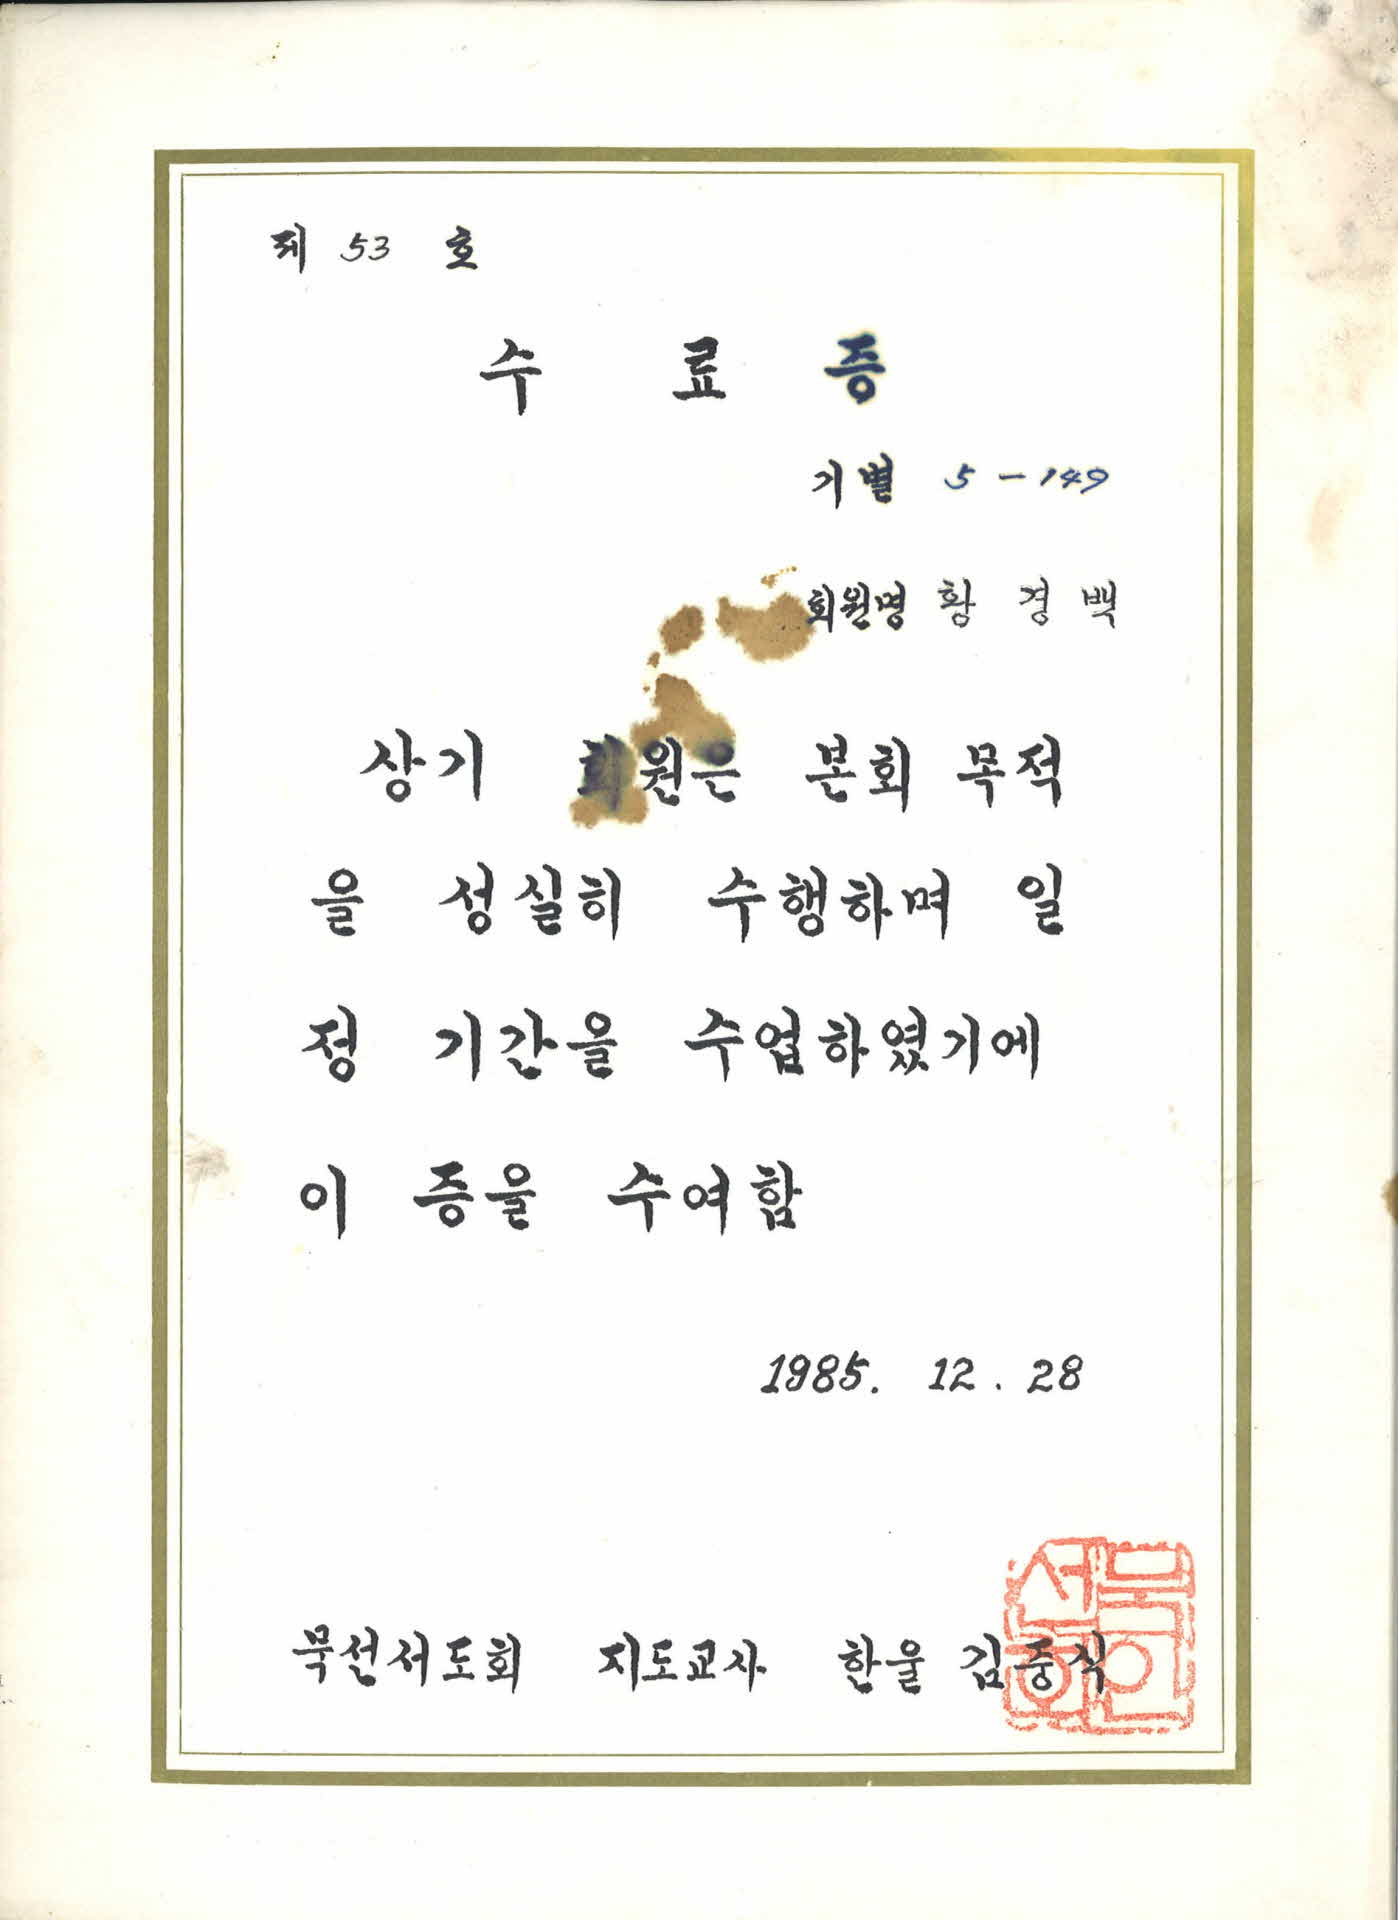 제 53 호
수 료 증
기별 5-149
회원명 황 경 백
상기 회원은 본회 목적
을 성실히 수행하며 일
정 기간을 수업하였기에
이 증을 수여함
1985. 12. 28
묵선서도회 지도교사 한울 김중식